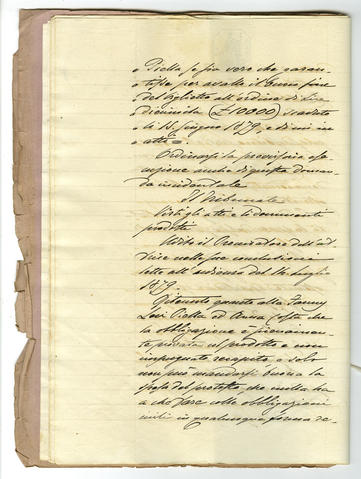 e Piella se sia vero che garan-
tisse per avallo il buon fine
del biglietto all'ordine di Lire
diecimila (£10000) scaduto
li 15 Giugno 1879, e di cui in
atti =
Ordinarsi la provvisoria ese-
cuzione anche di questa doman-
da incidentale
Il Tribunale
Visti gli atti e li documenti
prodotti
Udito il Procuratore dell'at-
trice nelle sue conclusioni
lette all'udienza del 14 luglio
1879.
Ritenuto quanto alla Fanny
Levi Piella ed che
la obbligazione è pienamen-
te provata col prodotto e non
impugnato recapito e solo
non può mandarsi buona la
spesa del protesto, che nulla ha
a che fare colle obbligazioni
civili in qualunque forma de-